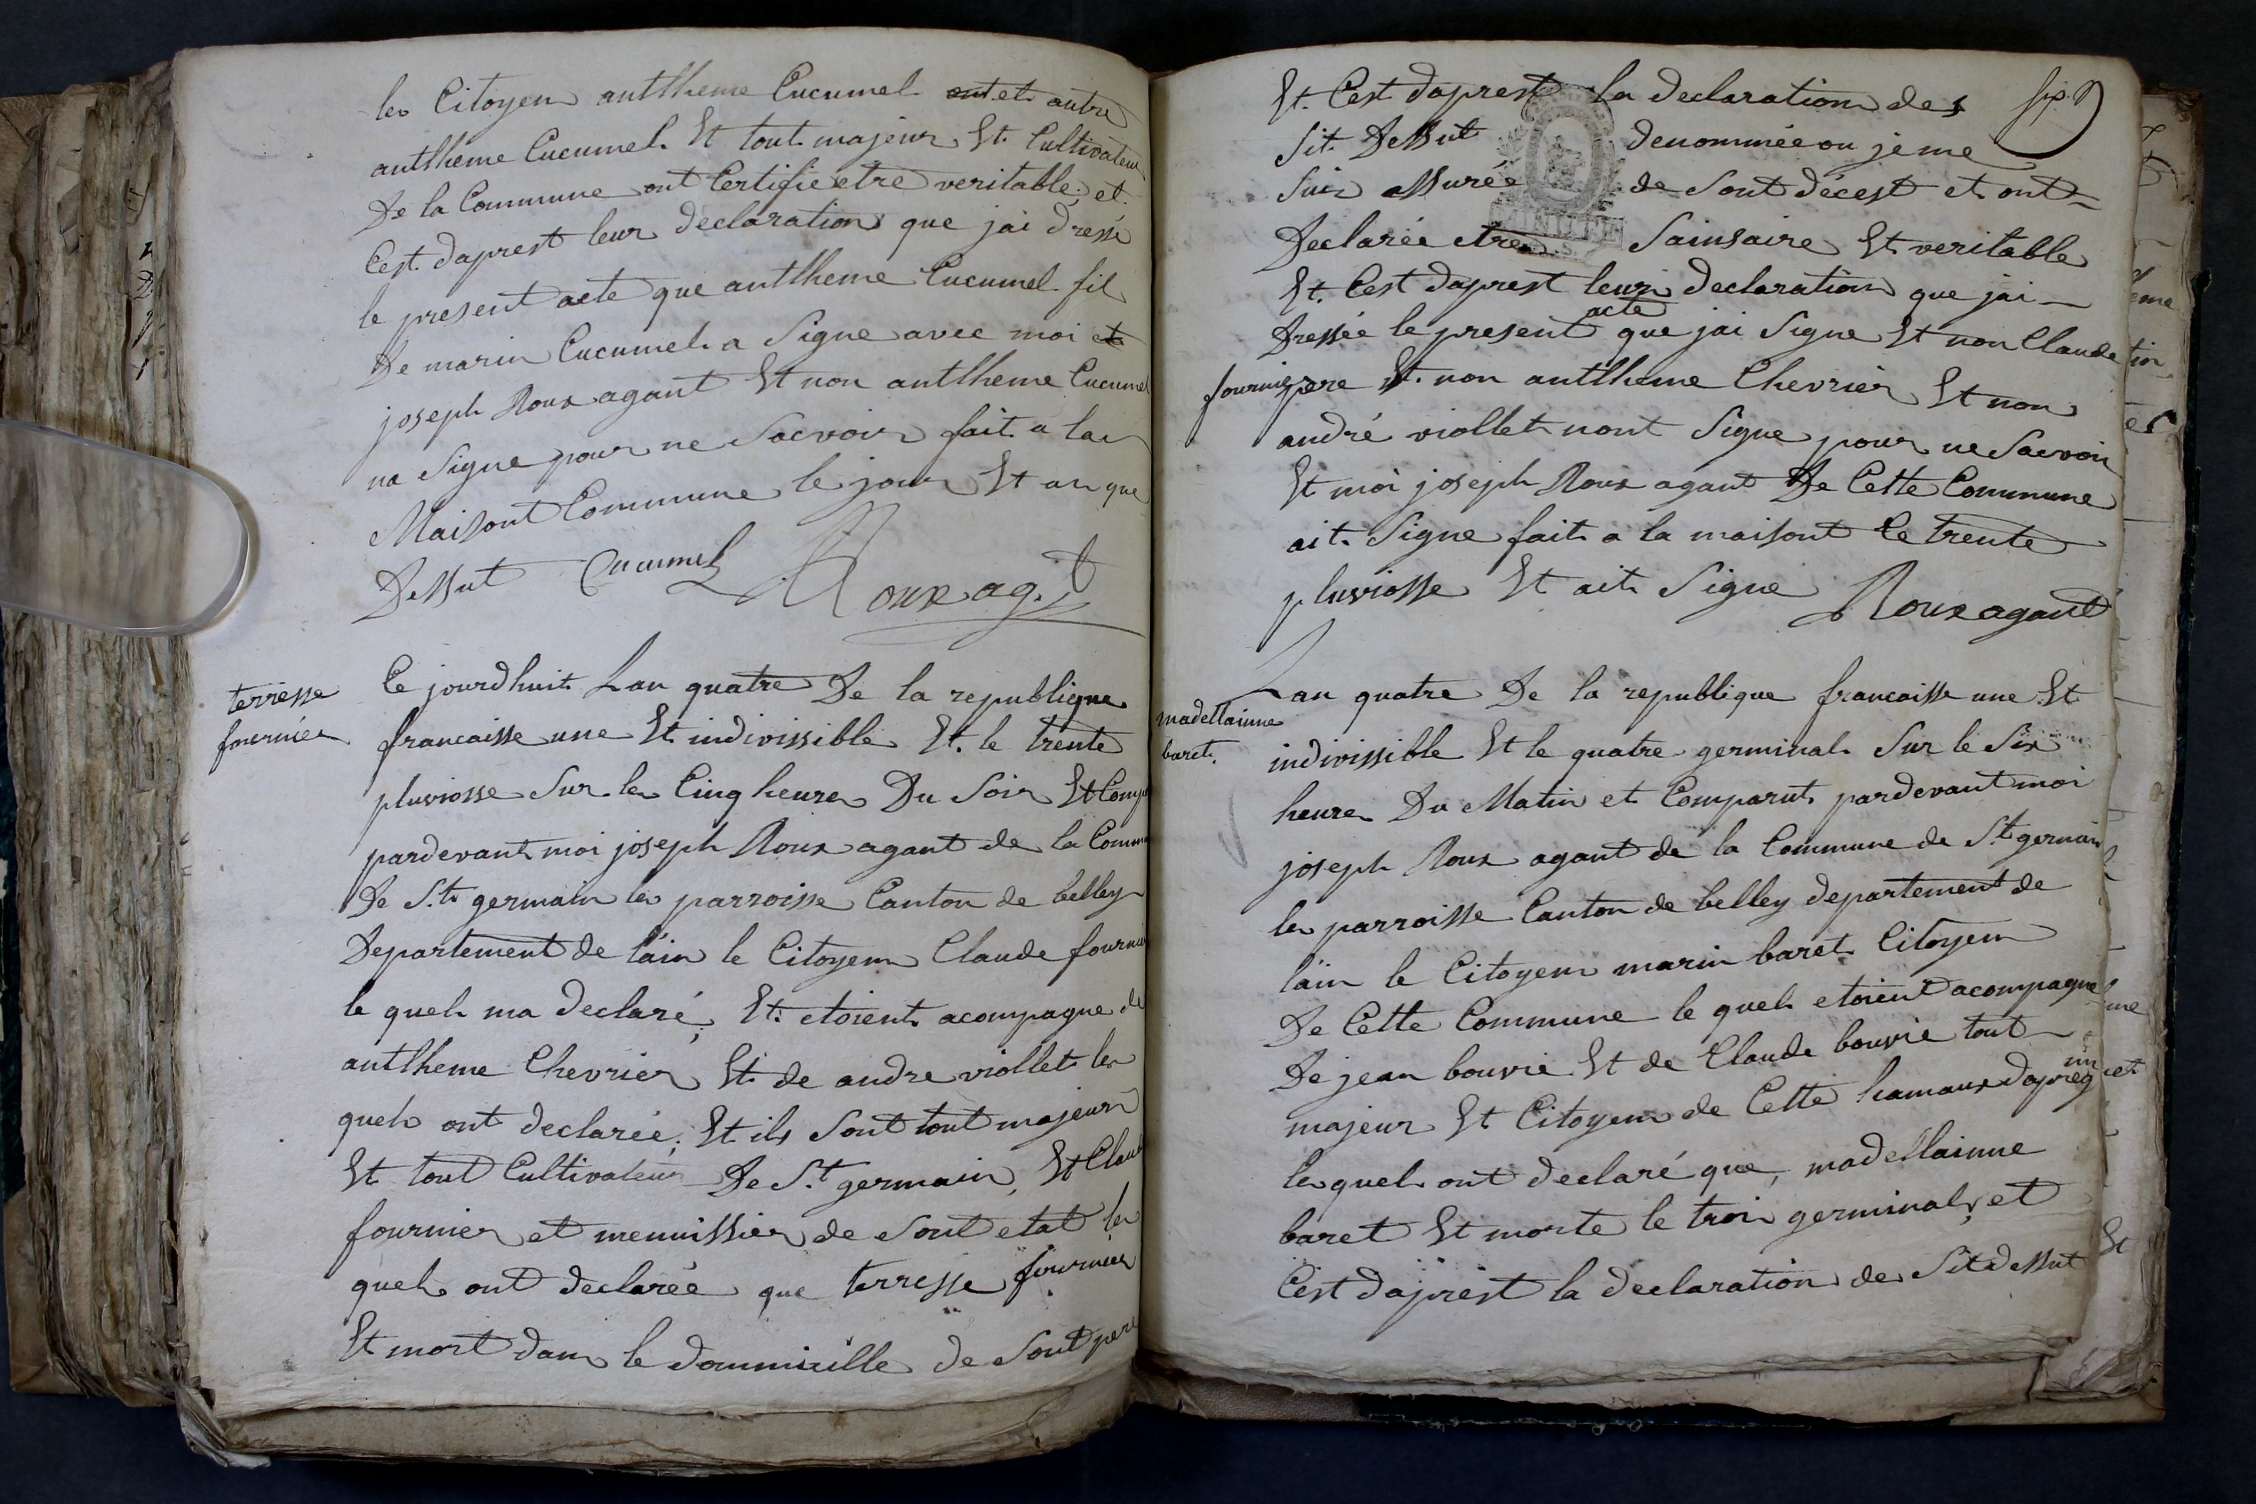 les Citoyen antlheme Cucumel et autre
antlheme Cucumel Et tout majeur Et Cultivateur
De la Commune ont Certifie etre veritable et
Cest daprest leur declaration que jai dressé
le present acte que antlheme Cucumel fil
De marin Cucumel a Signe avec moi et
joseph Roux agant Et non antlheme Cucumel
na Signe pour ne Sacvoir fait a la
Maisont Commune le jour Et an que
Dessut Cucumel Roux ag.t
terresse
fournier
Ce jourdhuit Lan quatre De la republique
francaisse une Et indivissible Et le trente
pluviosse Sur les Cinq heures Du Soir Et Comp
pardevant moi joseph Roux agant de la Commu
De S.t germain les parroisse Canton de belley
Departement de lain le Citoyen Claude fournie
le quel ma declaré Et etoient acompagne de
antlheme Chevrier Et de andre viollet les
quels ont declarée Et ils Sont tout majeur
Et tout Cultivateur De S.t germain, Et Claud
fournier et menuissier de Sont etat les
quels ont declarée que terresse fournier
Et mort dans le dommicille de Sont pere
Et Cest daprest la declaration des
Sit Dessut denommée ou je me
Suis assurée de Sont décest et ont
Declarée etre Sainsaire Et veritable
Et Cest daprest leur declaration que jai
acte
Dressée le present que jai Signe Et non Claude
fournier pere Et non antlheme Chevrier Et non
andré viollet nont Signe pour ne Sacvoir
Et moi joseph Roux agant De Cette Commune
ait Signe fait a la maisont le trente
pluviosse Et ait Signe Roux agant
madellainne
baret.
Lan quatre De la republique francaisse une Et
indivissible Et le quatre germinal Sur le Six
heures Du Matin et Comparut pardevant moi
joseph Roux agant de la Commune de S.t germain
les parroisse Canton de belley departement de
lain le Citoyen marin baret Citoyen
De Cette Commune le quel etoient acompagne
De jean bouvie Et de Claude bouvie tout
majeur Et Citoyen de Cette hamaux
les quel ont declaré que, madellainne
baret Et morte le trois germinal, et
Cest daprest la declaration de Sit dessut